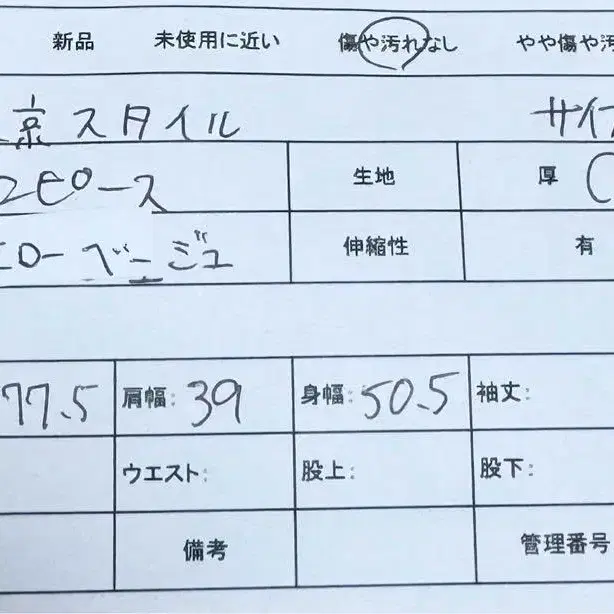 新品 未使用に近い 傷や汚れなし やや傷や汚
京スタイル サイ
ピース 生地 厚
ローベージュ 伸縮性 有
77.5 肩幅: 39 身幅: 50.5 袖丈:
ウエスト: 股上: 股下:
備考 管理番号